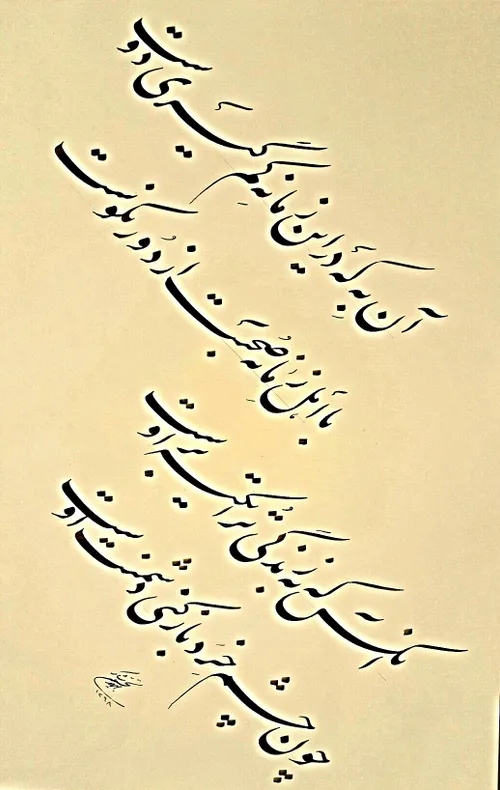 آن به که در این زمانه کم گیری دوست
با اهل زمانه صحبت از دور نکوست
آنکس که به زندگی ترا تکیه بر اوست
چون چشم خرد باز کنی دشمنت اوست